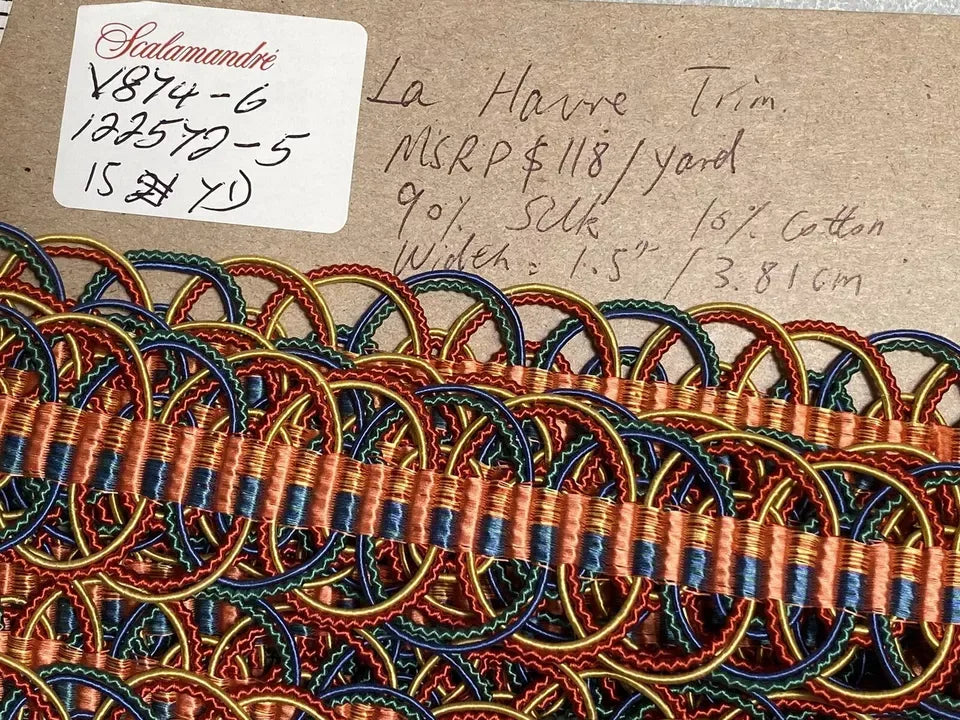 Scalamandré
V874-6
122572-5
15 YD
La Havre Trim.
MSRP $118/yard
90% Silk 10% Cotton
Width: 1.5" / 3.81cm